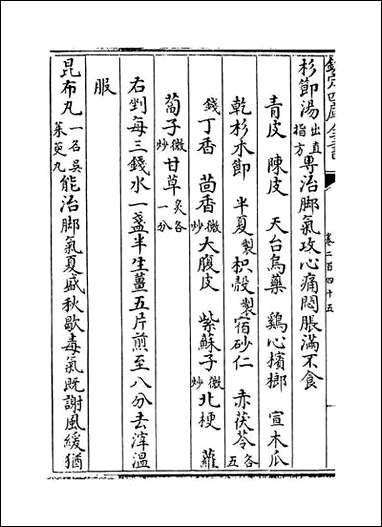 欽定四庫全書
卷二百四十五
杉節湯出直指方專治脚氣攻心痛悶脹滿不食
青皮　陳皮　天台烏藥　鷄心檳榔　宣木瓜
乾杉木節　半夏製枳殼製宿砂仁　赤茯苓各五
錢丁香　茴香微炒大腹皮　紫蘇子微炒北梗　蘿
蔔子微炒甘草炙各一分
右剉每三錢水一盞半生薑五片煎至八分去滓溫
服
昆布丸一名吳茱萸丸能治脚氣夏盛秋歇毒氣既謝風緩猶